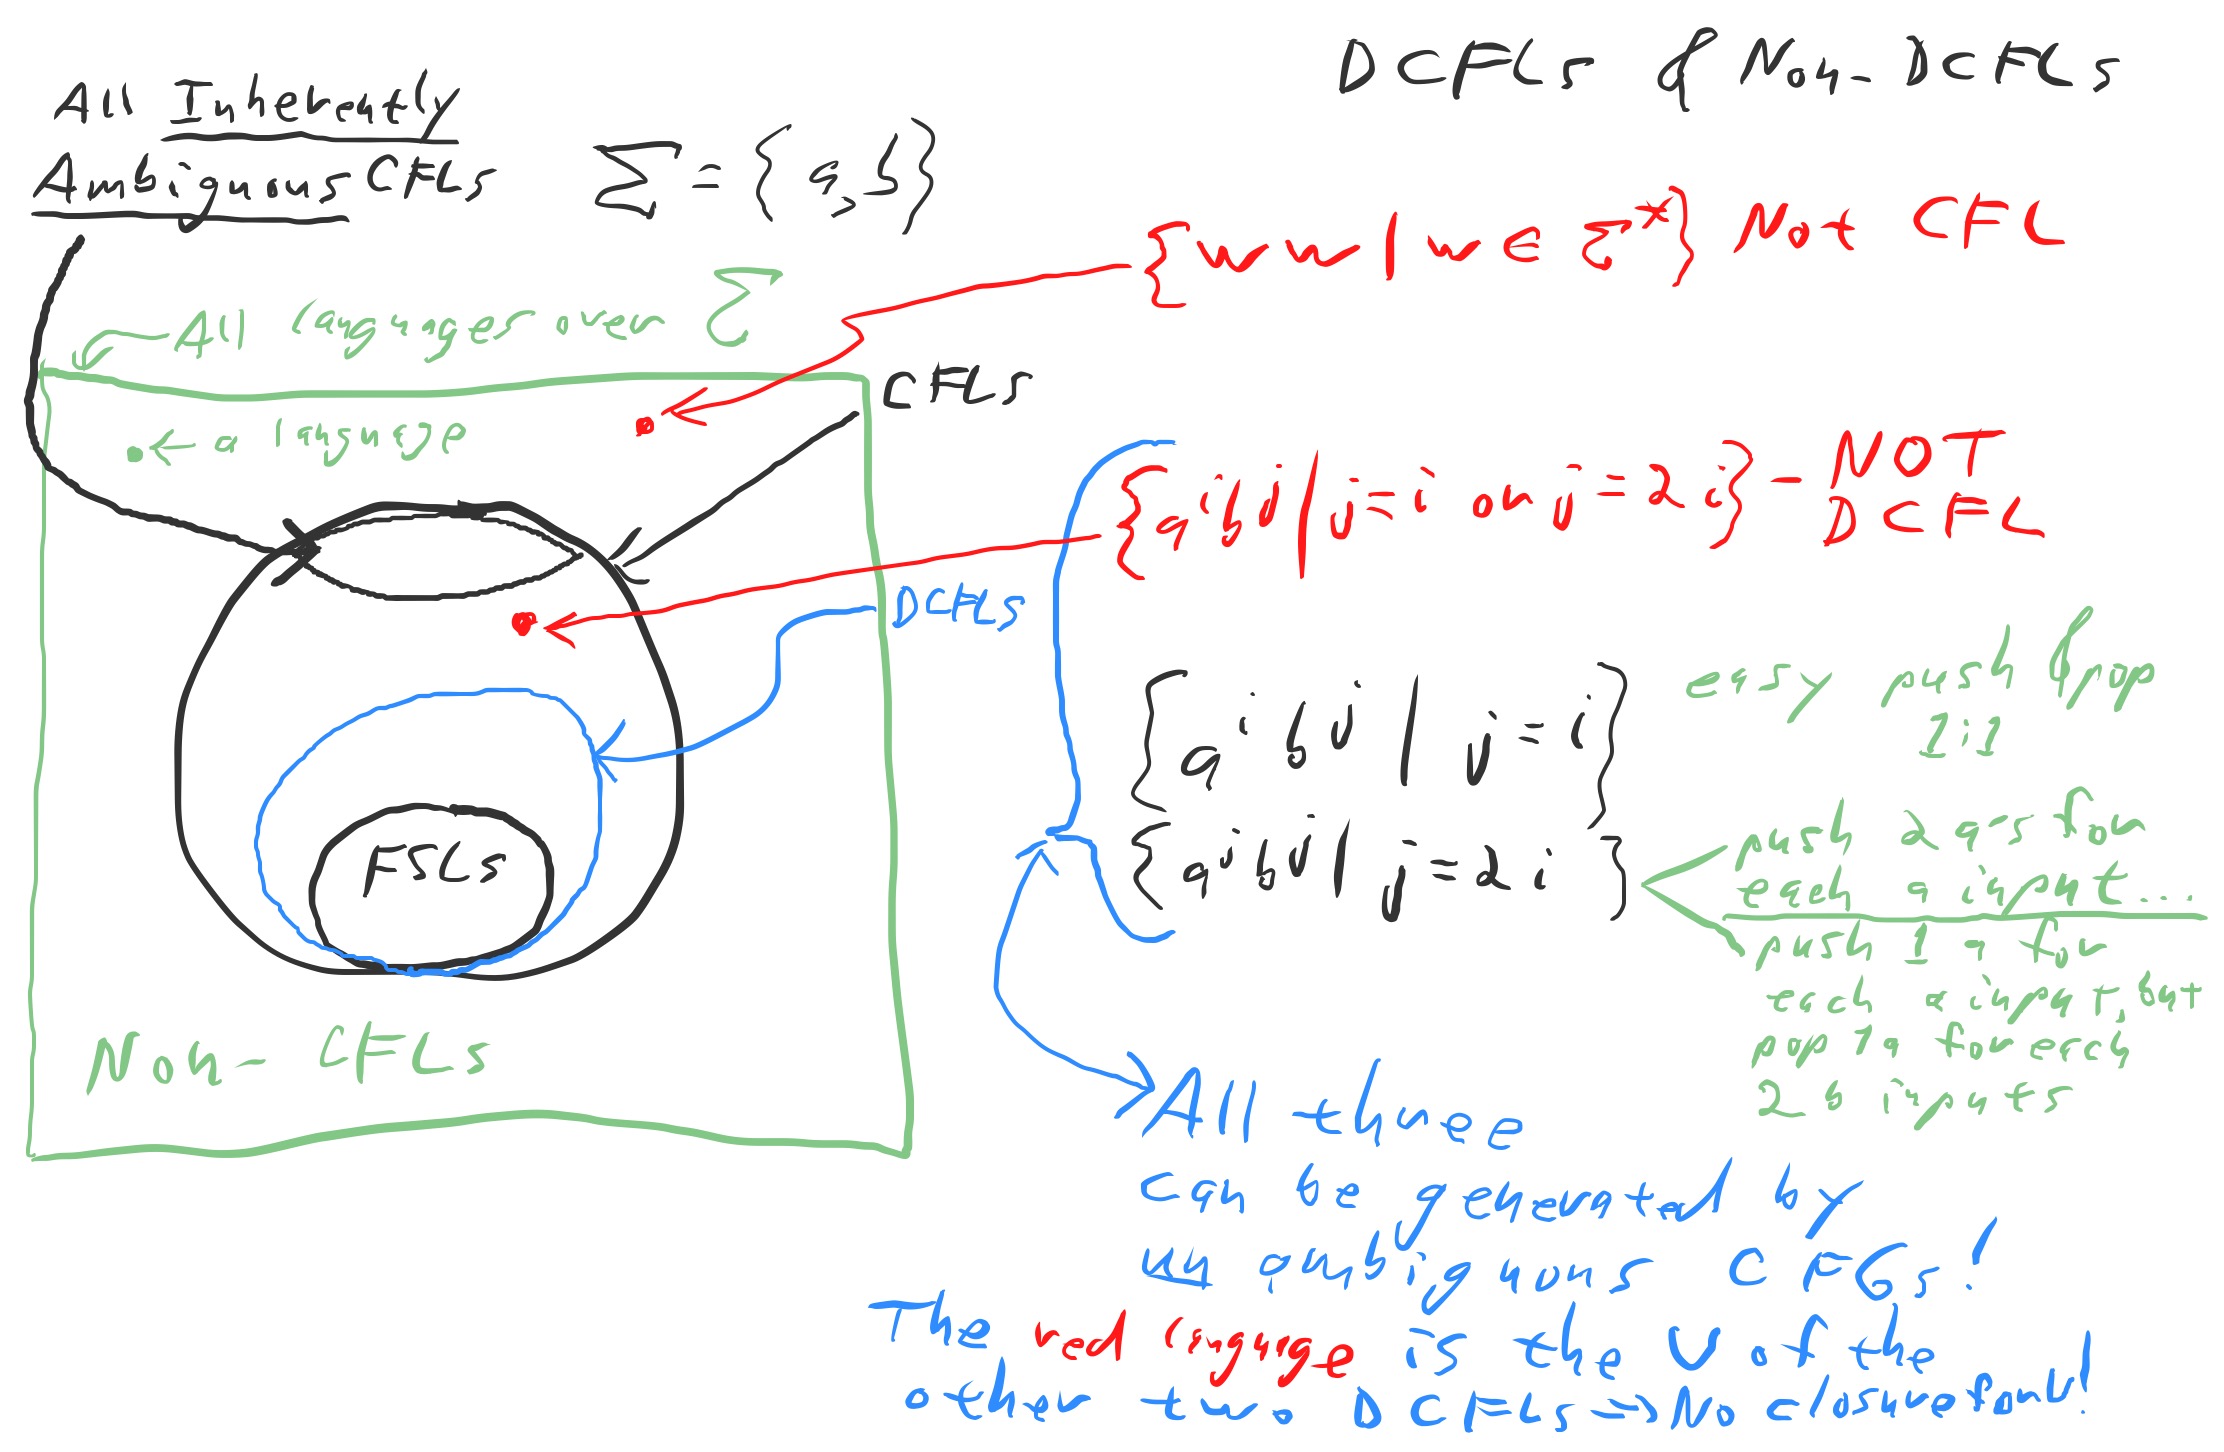 DCFLs & Non-DCFLs
All Inherently
Ambiguous CFLs
Σ = {a,b}
{ww|w∈Σ*} Not CFL
All languages over Σ
CFLs
a language
{aⁱbʲ|j=i or j=2i} - NOT
DCFL
DCFLs
easy push & pop
1:1
{aⁱbʲ | j=i}
{aʲbʲ| j=2i}
push 2 a's for
each a input...
push 1 a for
each a input, but
pop 1a for each
2 b inputs
FSLs
Non-CFLs
All three
can be generated by
unambiguous CFGs!
The red language is the U of the
other two DCFLs ⇒ No closure for U!